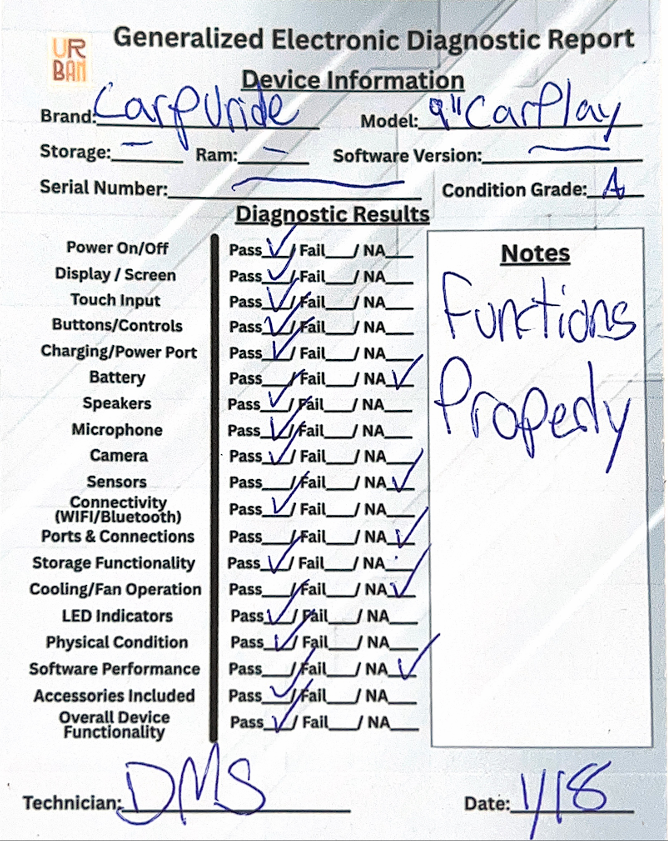 UR
BAN
Generalized Electronic Diagnostic Report
Device Information
Brand: Carpuride Model: 9" CarPlay
Storage: — Ram: — Software Version: —
Serial Number: — Condition Grade: A
Diagnostic Results
Power On/Off Pass ✓ / Fail___/ NA___
Display / Screen Pass ✓ / Fail___/ NA___
Touch Input Pass ✓ / Fail___/ NA___
Buttons/Controls Pass ✓ / Fail___/ NA___
Charging/Power Port Pass ✓ / Fail___/ NA___
Battery Pass___/ Fail___/ NA ✓
Speakers Pass ✓ / Fail___/ NA___
Microphone Pass ✓ / Fail___/ NA___
Camera Pass ✓ / Fail___/ NA___
Sensors Pass___/ Fail___/ NA ✓
Connectivity
(WIFI/Bluetooth) Pass ✓ / Fail___/ NA___
Ports & Connections Pass___/ Fail___/ NA ✓
Storage Functionality Pass ✓ / Fail___/ NA___
Cooling/Fan Operation Pass___/ Fail___/ NA ✓
LED Indicators Pass ✓ / Fail___/ NA___
Physical Condition Pass ✓ / Fail___/ NA___
Software Performance Pass___/ Fail___/ NA ✓
Accessories Included Pass ✓ / Fail___/ NA___
Overall Device
Functionality Pass ✓ / Fail___/ NA___
Notes
Functions
Properly
Technician: DMS Date: 1/18